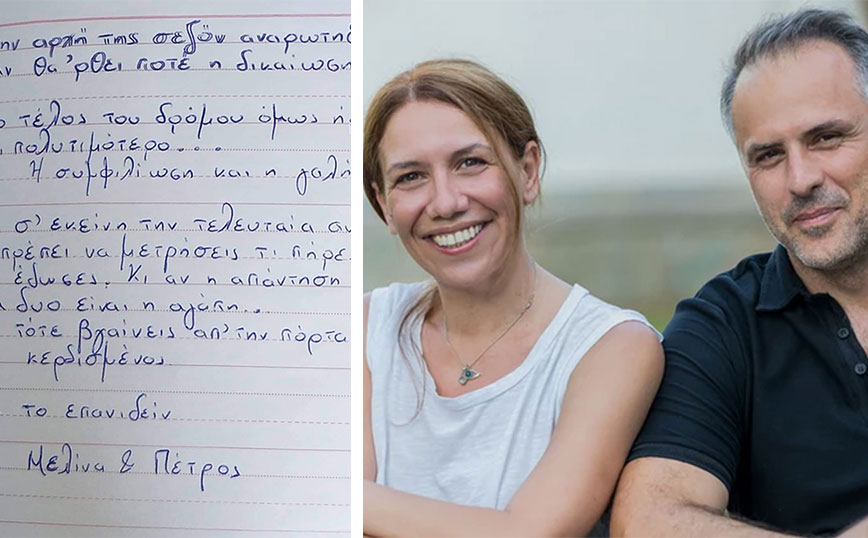 ην αρχή της σεζόν αναρωτήθ
ν θα 'ρθει ποτέ η δικαίωση
ο τέλος του δρόμου όμως ή
ι πολυτιμότερο...
Η συμφιλίωση και η γαλή
σ' εκείνη την τελευταία αν
πρέπει να μετρήσεις τι πήρε
έδωσες. Κι αν η απάντηση
α δυο είναι η αγάπη...
τότε βγαίνεις απ' την πόρτα
κερδισμένος
το επανιδείν
Μελίνα & Πέτρος